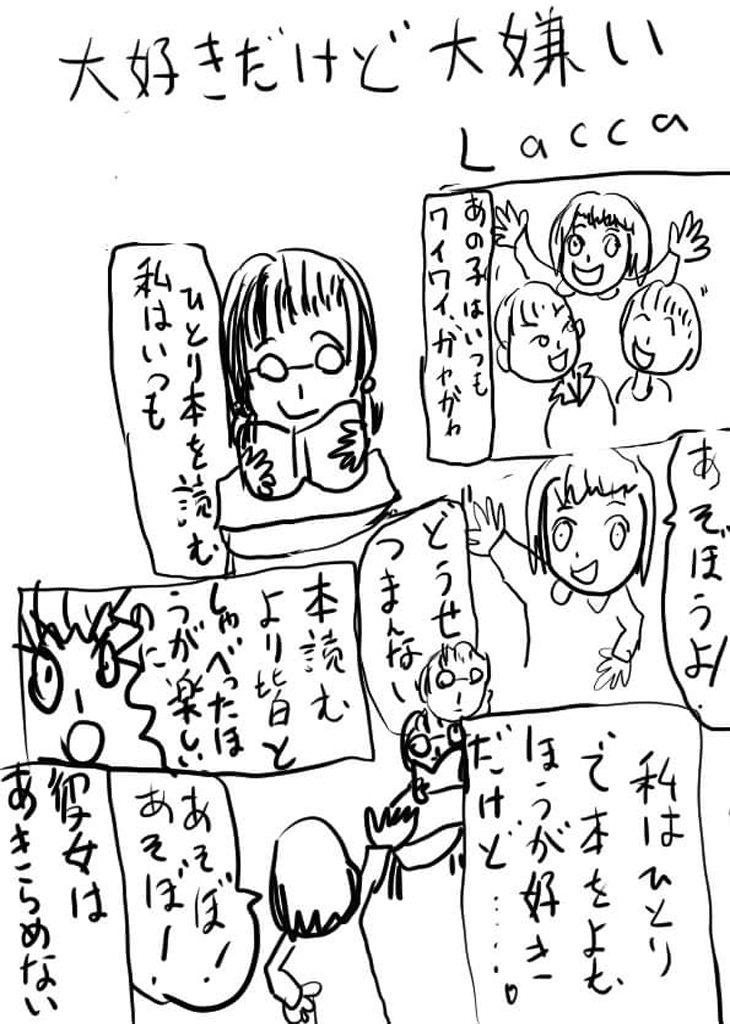 大好きだけど大嫌い
Lacca
あの子はいつも
ワイワイ、ガヤガヤ
私はいつも
ひとり本を読む
あそぼうよ!
どうせ
つまんない
本読む
より皆と
しゃべったほ
うが楽しい
のに
私はひとり
で本をよむ
ほうが好き
だけど……。
あそぼ!
あそぼー!
彼女は
あきらめない